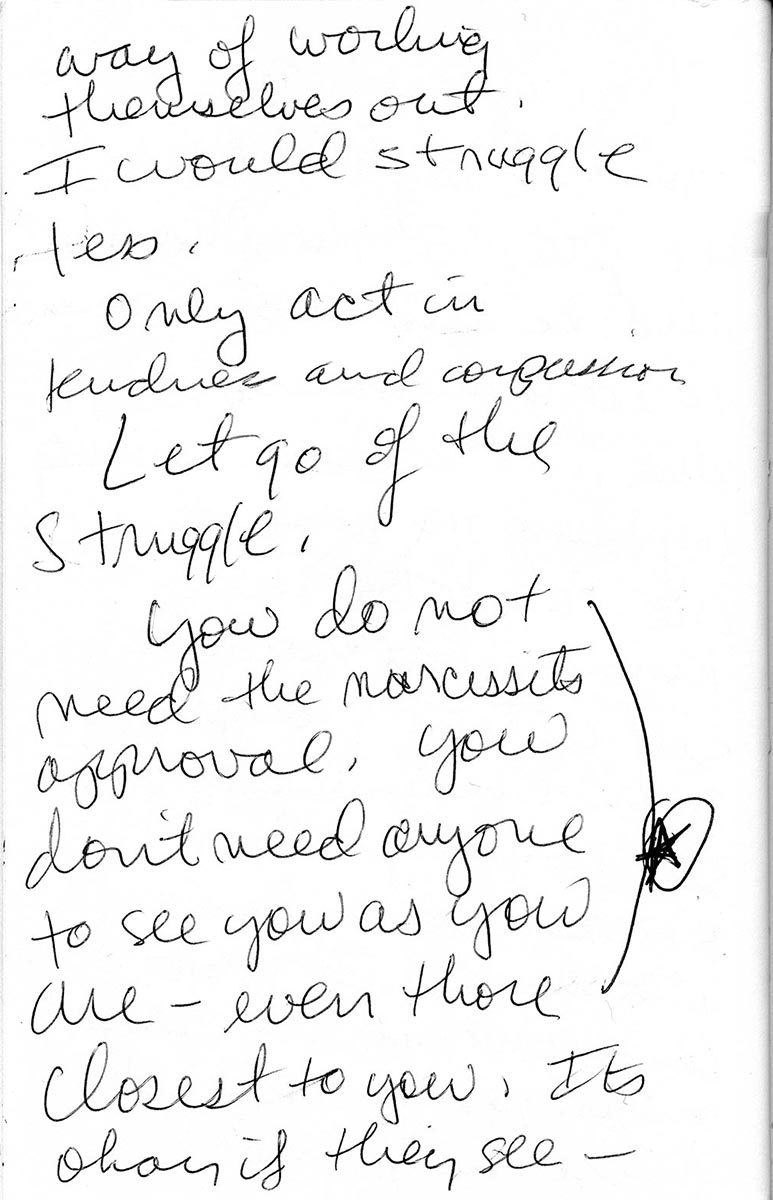 way of working
themselves out.
I would struggle
less.
Only act in
kindness and compassion
Let go of the
struggle.
You do not
need the narcissits
approval. You
don't need anyone
to see you as you
are – even those
closest to you. Its
okay if they see –